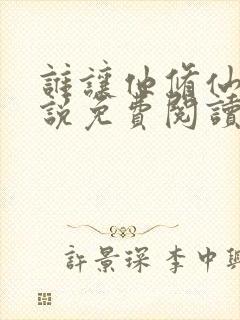 誰讓他修仙
說免費閱讀
許景琛李中興